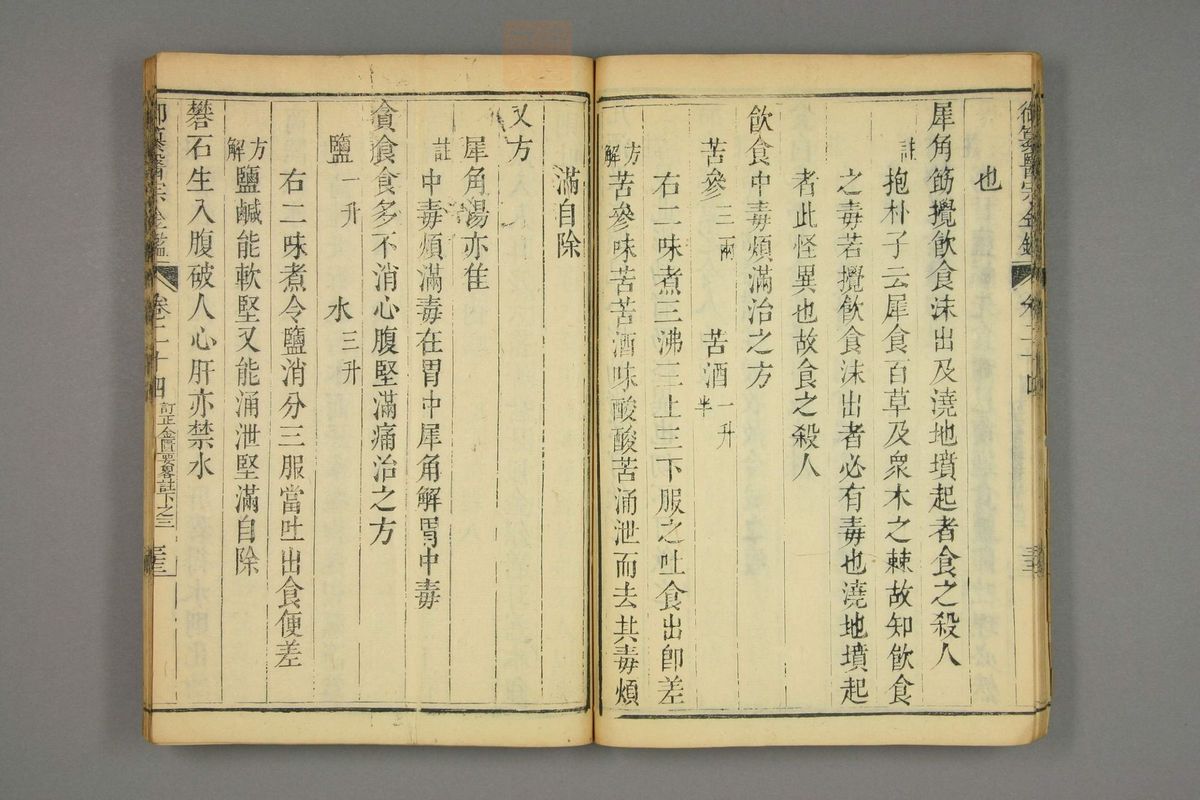 也
犀角筯攪飲食沫出及澆地墳起者食之殺人
註抱朴子云犀食百草及衆木之棘故知飲食
之毒若攪飲食沫出者必有毒也澆地墳起
者此怪異也故食之殺人
飲食中毒煩滿治之方
苦參三兩 苦酒一升半
右二味煮三沸三上三下服之吐食出卽差
方解苦參味苦苦酒味酸酸苦涌泄而去其毒煩
滿自除
又方
犀角湯亦佳
註中毒煩滿毒在胃中犀角解胃中毒
貪食食多不消心腹堅滿痛治之方
鹽一升 水三升
右二味煮令鹽消分三服當吐出食便差
方解鹽鹹能軟堅又能涌泄堅滿自除
礬石生入腹破人心肝亦禁水
御纂醫宗金鑑 卷二十四 訂正金匱要畧註下之三